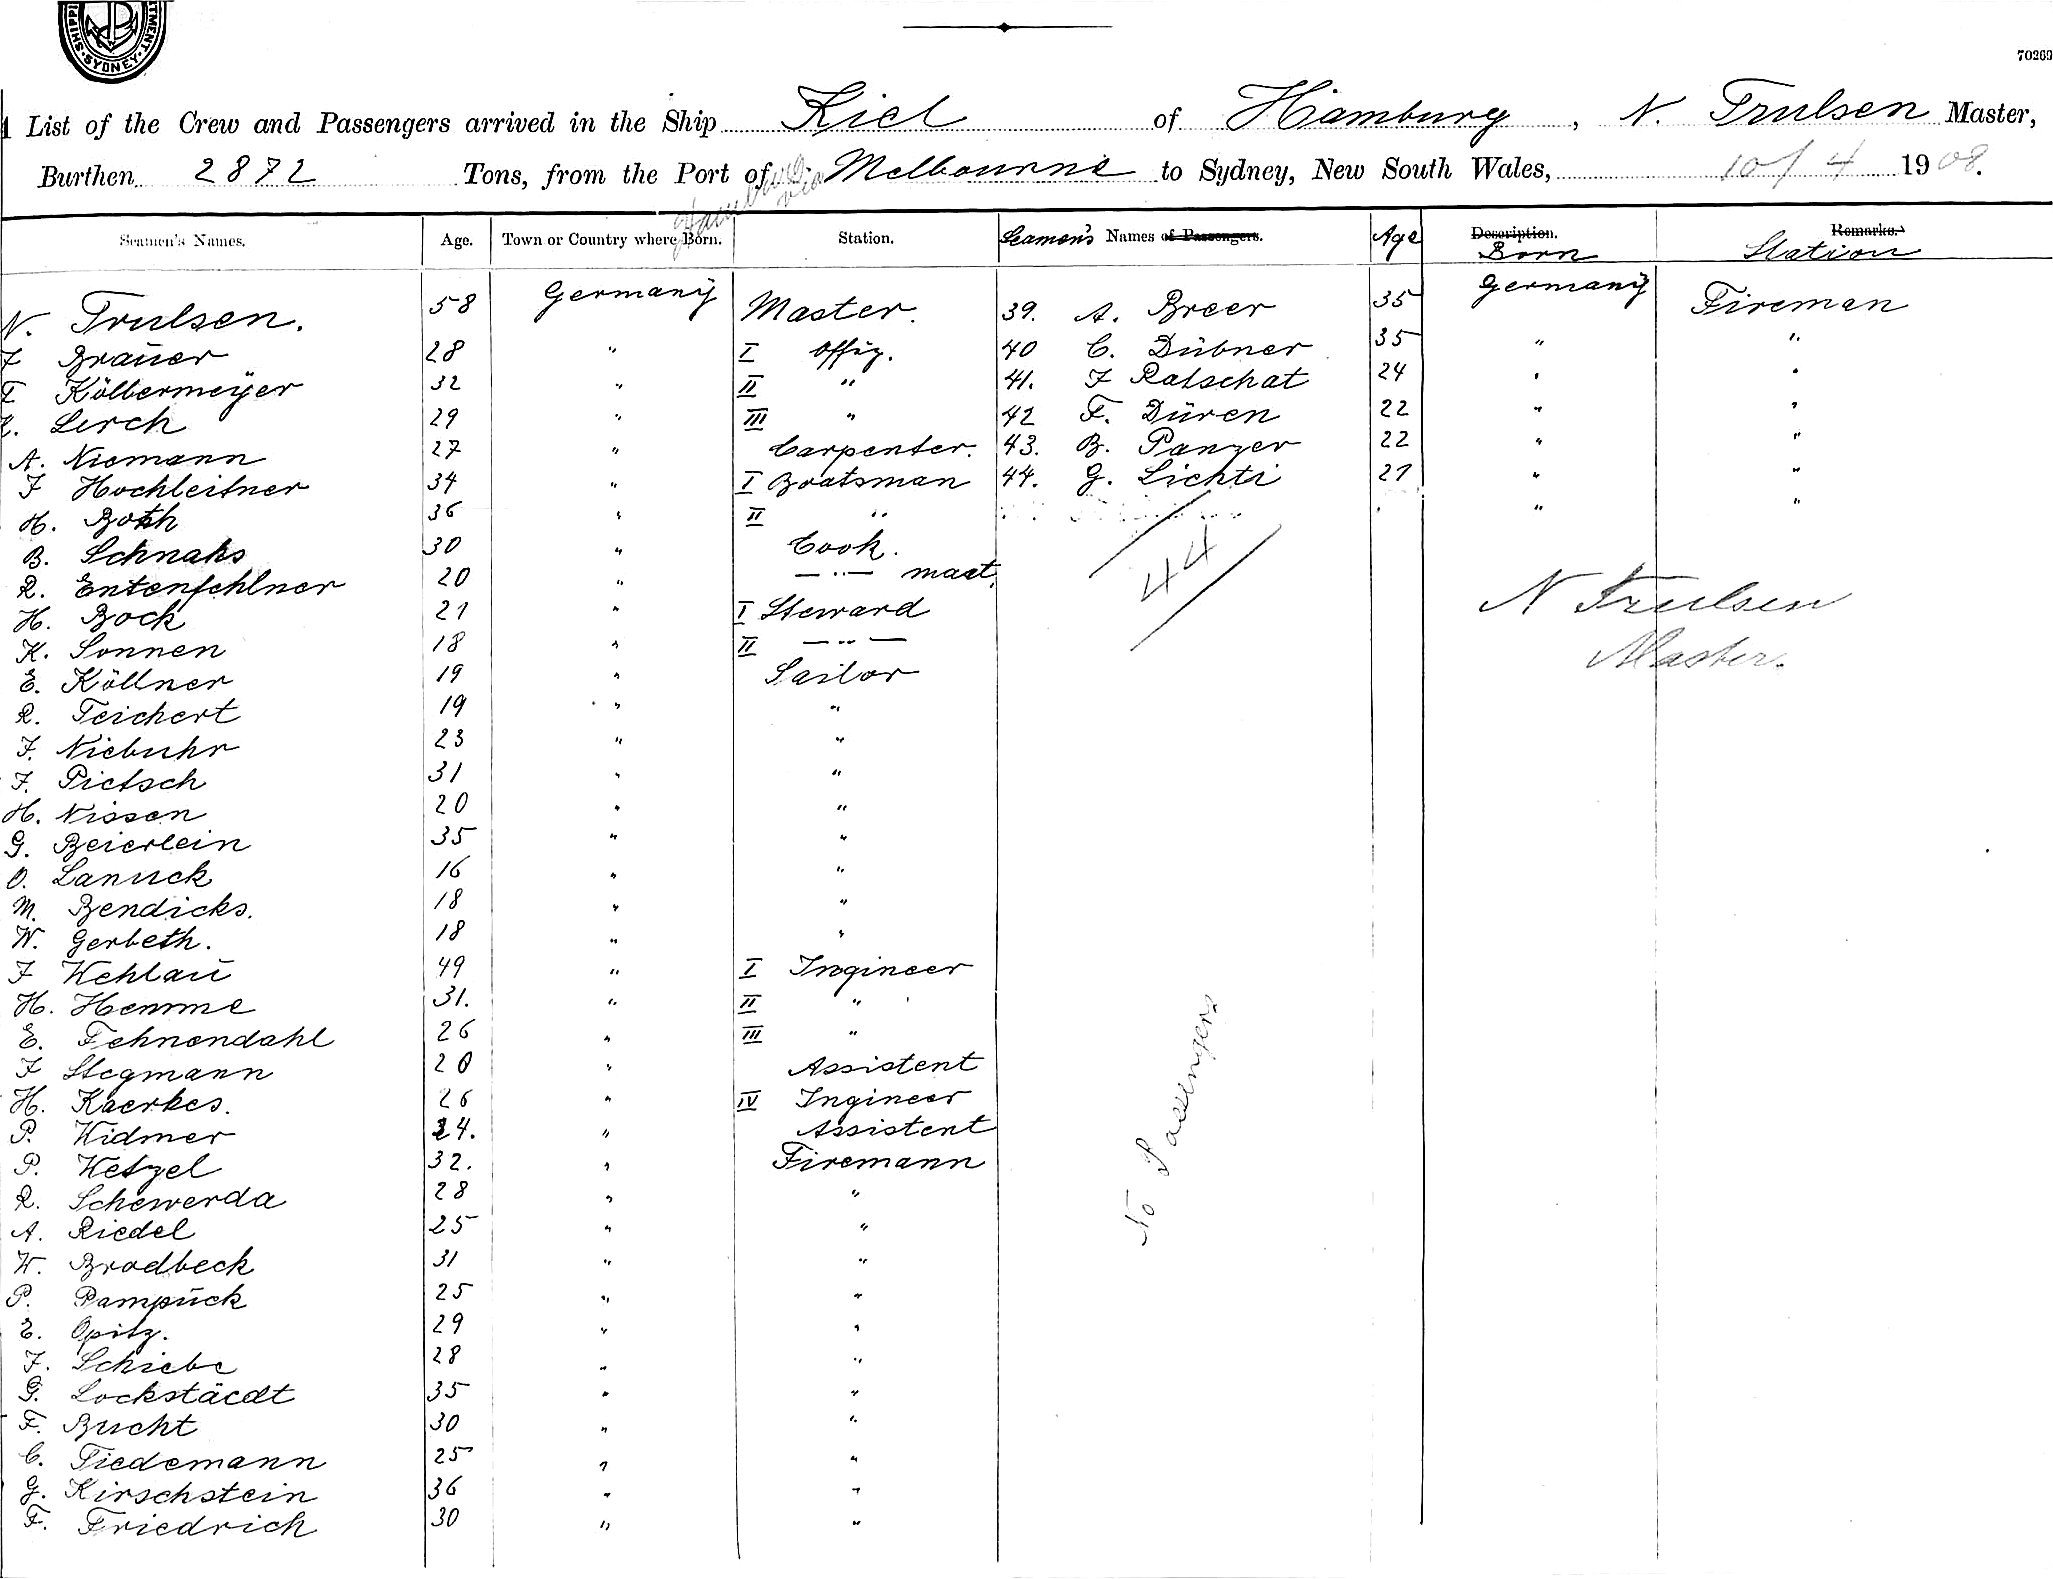 SHIPPI TMENT. SYDNEY.
70269
List of the Crew and Passengers arrived in the Ship Kiel of Hamburg, N. Trulsen Master,
Burthen 2872 Tons, from the Port of Hamburg via Melbourne to Sydney, New South Wales, 10/4 1908.
Seamen's Names. Age. Town or Country where Born. Station. Seamen's Names of Passengers. Age Description. Born Remarks. Station
N. Trulsen. 58 Germany Master. 39. A. Breer 35 Germany Fireman
F Braŭer 28 " I Offiz. 40 C. Dübner 35 " "
Kölbermeÿer 32 " II " 41. F Ratschat 24 " "
Lerch 29 " III " 42 F. Düren 22 " "
A. Niemann 27 " Carpenter. 43. B. Panzer 22 " "
F Hochleitner 34 " I Boatsman 44. G. Lichti 21 " "
H. Both 36 " II " " "
B. Schnaks 30 " Cook.
R. Entenfehlner 20 " — " — maat.
H. Bock 21 " I Steward
K. Sonnen 18 " II — " —
E. Köllner 19 " Sailor
R. Teichert 19 " "
F. Niebuhr 23 " "
F. Pietsch 31 " "
H. Nissen 20 " "
G. Beierlein 35 " "
O. Lanuck 16 " "
M. Bendicks. 18 " "
W. Gerbeth. 18 " "
F Wehlaŭ 49 " I Ingineer
H. Hemme 31. " II "
E. Fehnendahl 26 " III "
F Stegmann 20 " Assistent
H. Kaerkes. 26 " IV Ingineer
P. Widmer 24. " Assistent
P. Wetzel 32. " Firemann
R. Schewerda 28 " "
A. Riedel 25 " "
W. Brodbeck 31 " "
P. Pampŭck 25 " "
E. Opitz. 29 " "
F. Schiebe 28 " "
G. Lockstäedt 35 " "
F. Bucht 30 " "
C. Tiedemann 25 " "
G. Kirschstein 36 " "
F. Friedrich 30 " "
44
N Trulsen
Master.
No Passengers